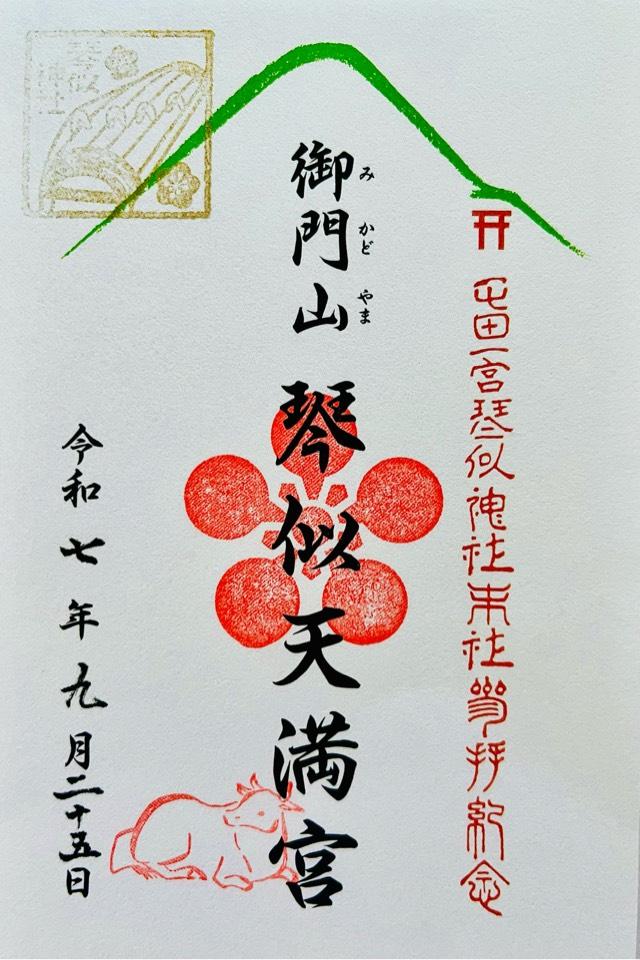 屯田一宮琴似神社末社参拝紀念
御門山
みかどやま
琴似天満宮
令和七年九月二十五日
琴似
神社